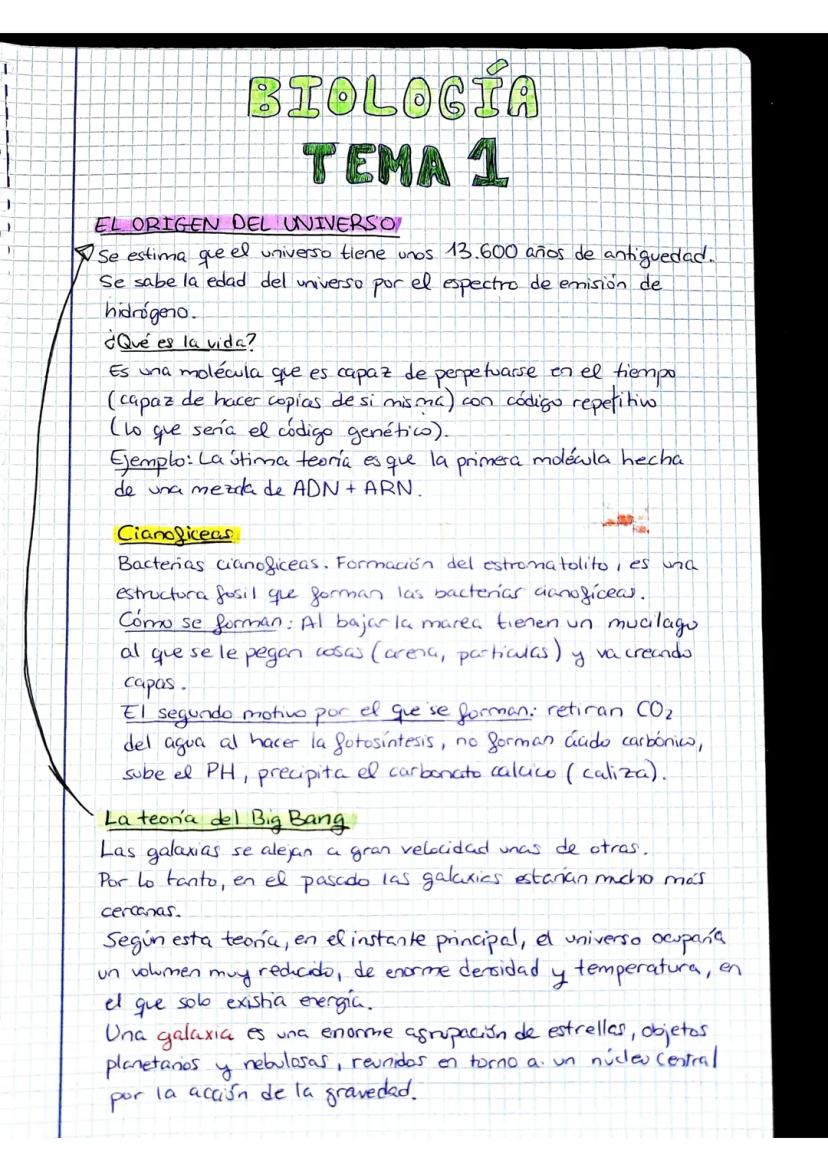 BIOLOGÍA
TEMA 1
EL ORIGEN DEL UNIVERSO
Se estima que el universo tiene unos 13.600 años de antiguedad.
Se sabe la edad del universo por el espectro de emisión de
hidrógeno.
¿Qué es la vida?
Es una molécula que es capaz de perpetuarse en el tiempo
(capaz de hacer copias de si misma) con código repetitivo
(lo que sería el código genético).
Ejemplo: La útima teoría es que la primera molécula hecha
de una mezcla de ADN + ARN.
Cianofíceas
Bacterias cianofíceas. Formación del estromatolito, es una
estructura fosil que forman las bacterias cianofíceas.
Cómo se forman: Al bajar la marea tienen un mucilago
al que se le pegan cosas (arena, particulas) y va creando
capas.
El segundo motivo por el que se forman: retiran CO₂
del agua al hacer la fotosíntesis, no forman ácido carbónico,
sube el PH, precipita el carbonato calcico (caliza).
La teoría del Big Bang
Las galaxias se alejan a gran velocidad unas de otras.
Por lo tanto, en el pasado las galaxias estarían mucho más
cercanas.
Según esta teoría, en el instante principal, el universo ocuparía
un volumen muy reducido, de enorme densidad y temperatura, en
el que solo existía energía.
Una galaxia es una enorme agrupación de estrellas, objetos
planetarios y nebulosas, reunidos en torno a un núcleo central
por la acción de la gravedad.